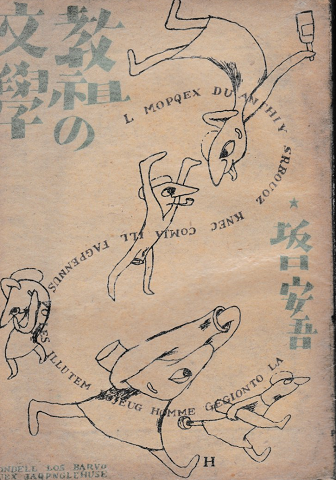 教祖の
文學
★ 坂口安吾
L MOPQEX DU AMIHIY SRBOUOZ
KNEC COMIA ILL FAGPENNUS
VOTES ILLUTEM ESJEUG HOMME GEGIONTO LA
H
ONDELL LOS BARVO